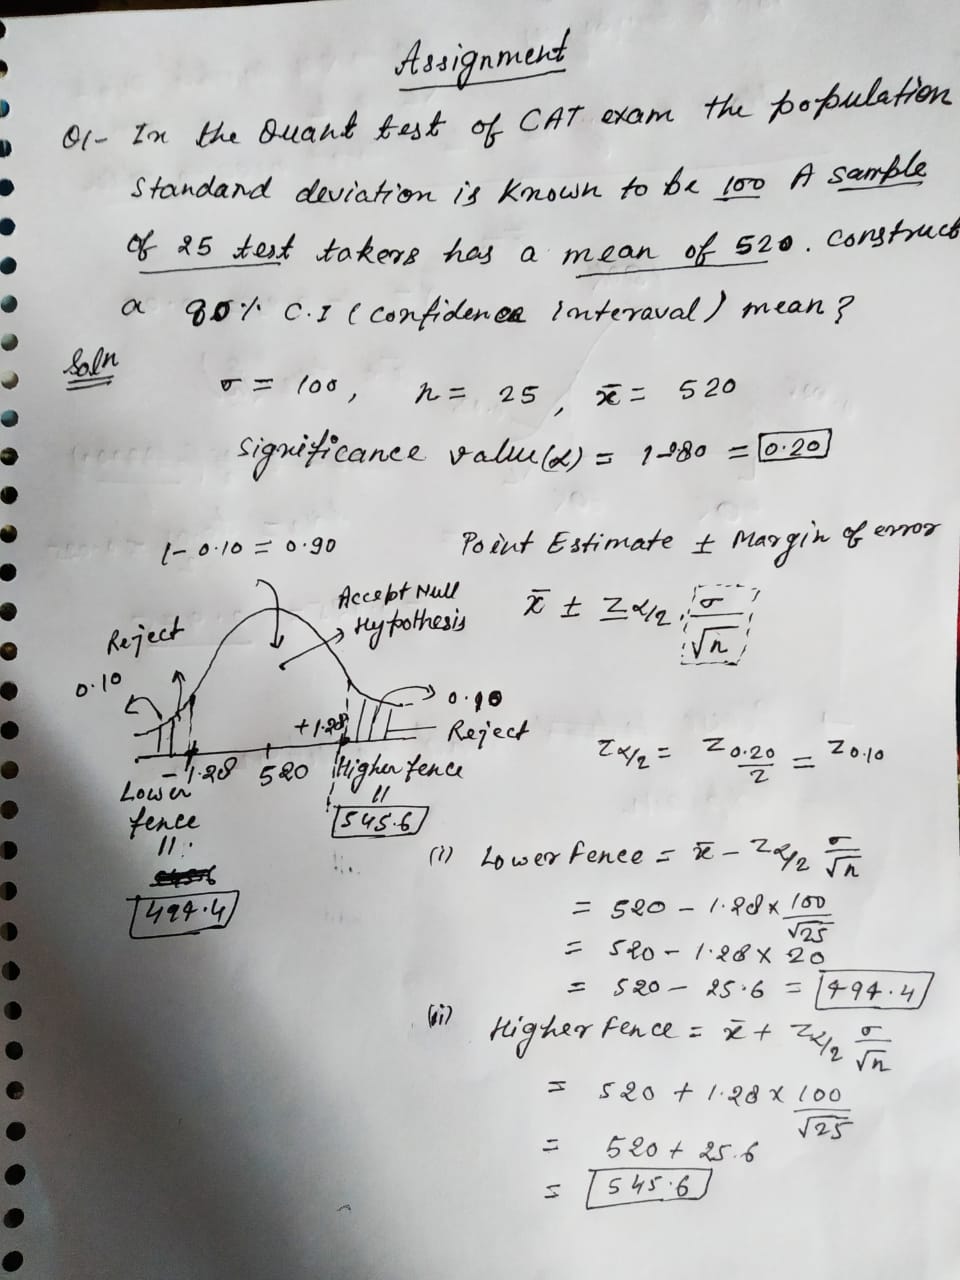 Assignment
Q1- In the Quant test of CAT exam the population
Standard deviation is known to be 100 A sample
of 25 test takers has a mean of 520. construct
a 80% C.I (confidence interaval) mean?
Soln
σ = 100, n = 25, x̄ = 520
significance value(α) = 1-0.80 = 0.20
1-0.10 = 0.90
Point Estimate ± Margin of error
Accept Null
Hypothesis
x̄ ± Zα/2 σ/√n
Reject
0.10
0.10
Reject
+1.28
-1.28 520 Higher fence
Lower
fence
||
545.6
||
494.4
Zα/2 = Z0.20/2 = Z0.10
(i) Lower fence = x̄ - Zα/2 σ/√n
= 520 - 1.28 x 100/√25
= 520 - 1.28 x 20
= 520 - 25.6 = 494.4
(ii) Higher fence = x̄ + Zα/2 σ/√n
= 520 + 1.28 x 100/√25
= 520 + 25.6
= 545.6